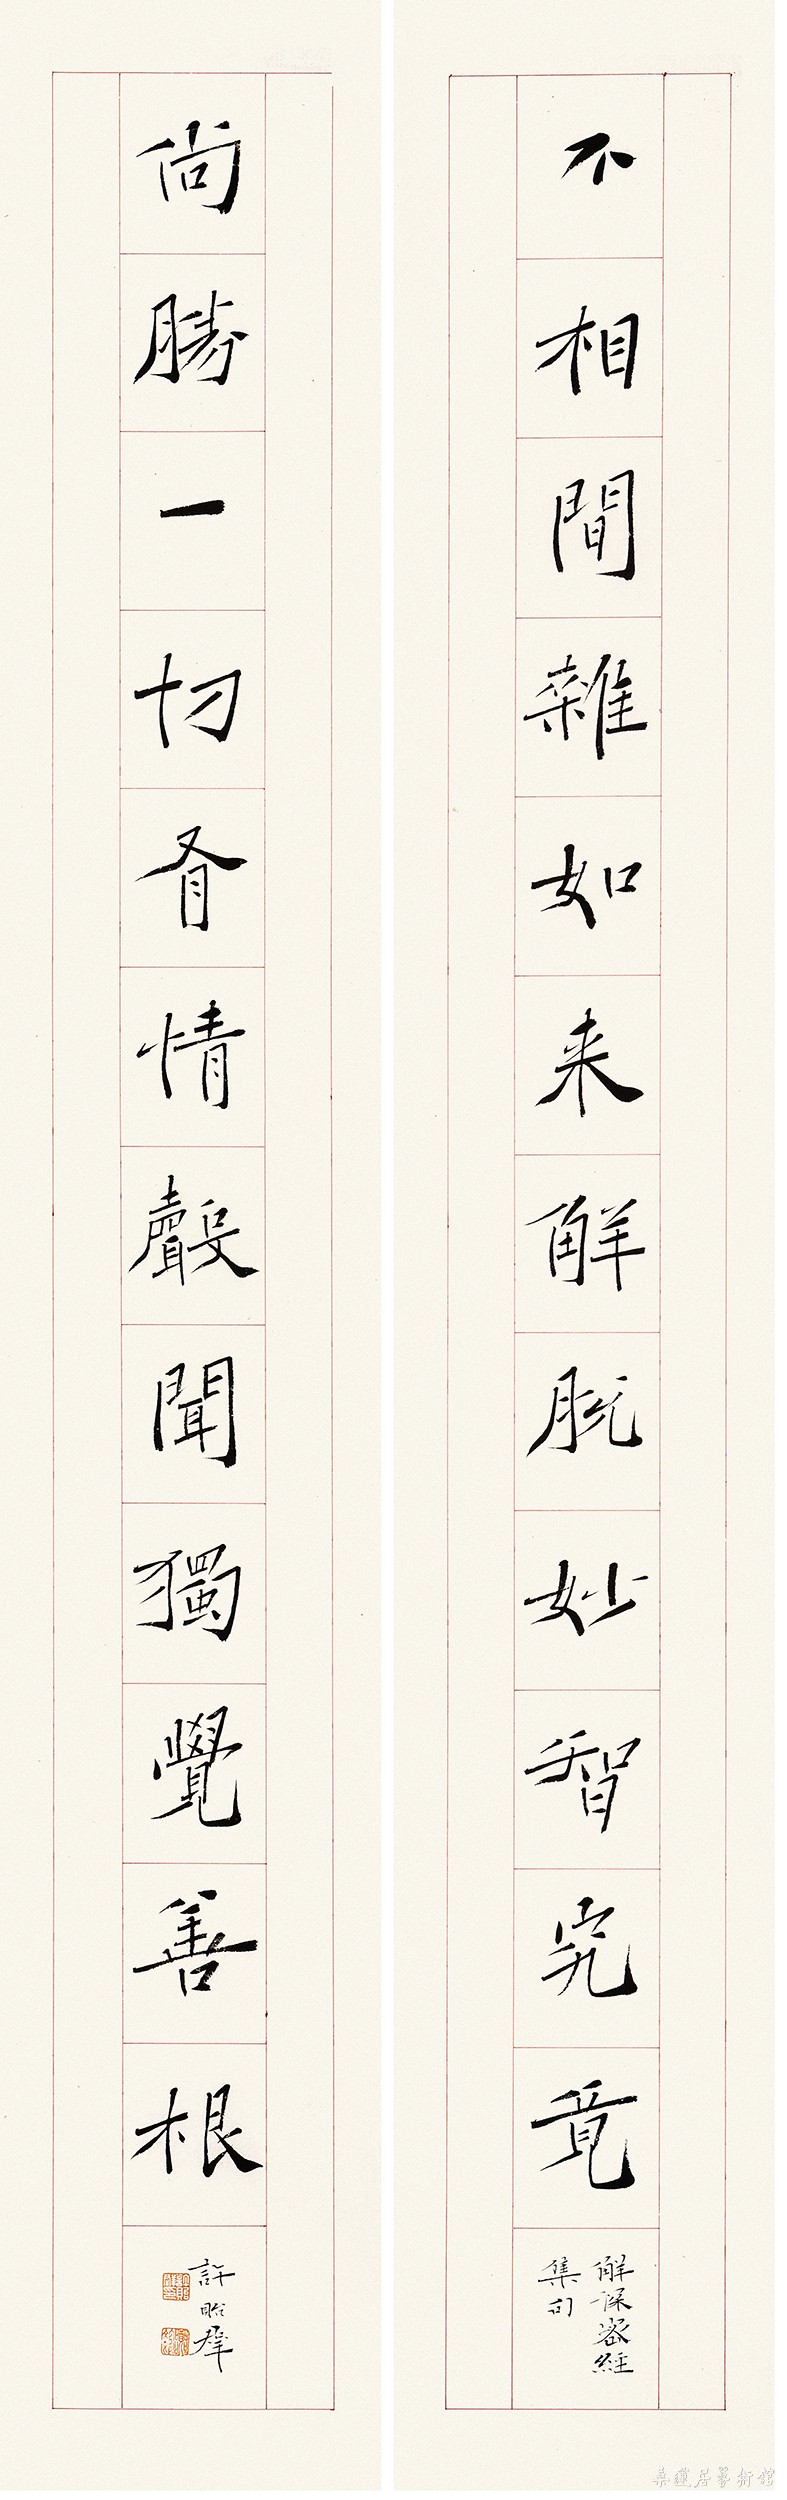 不相間雜如来解脱妙智究竟
解深密經
集句
尚勝一切有情聲聞獨覺善根
許昭犀
葉蓮居藝術館